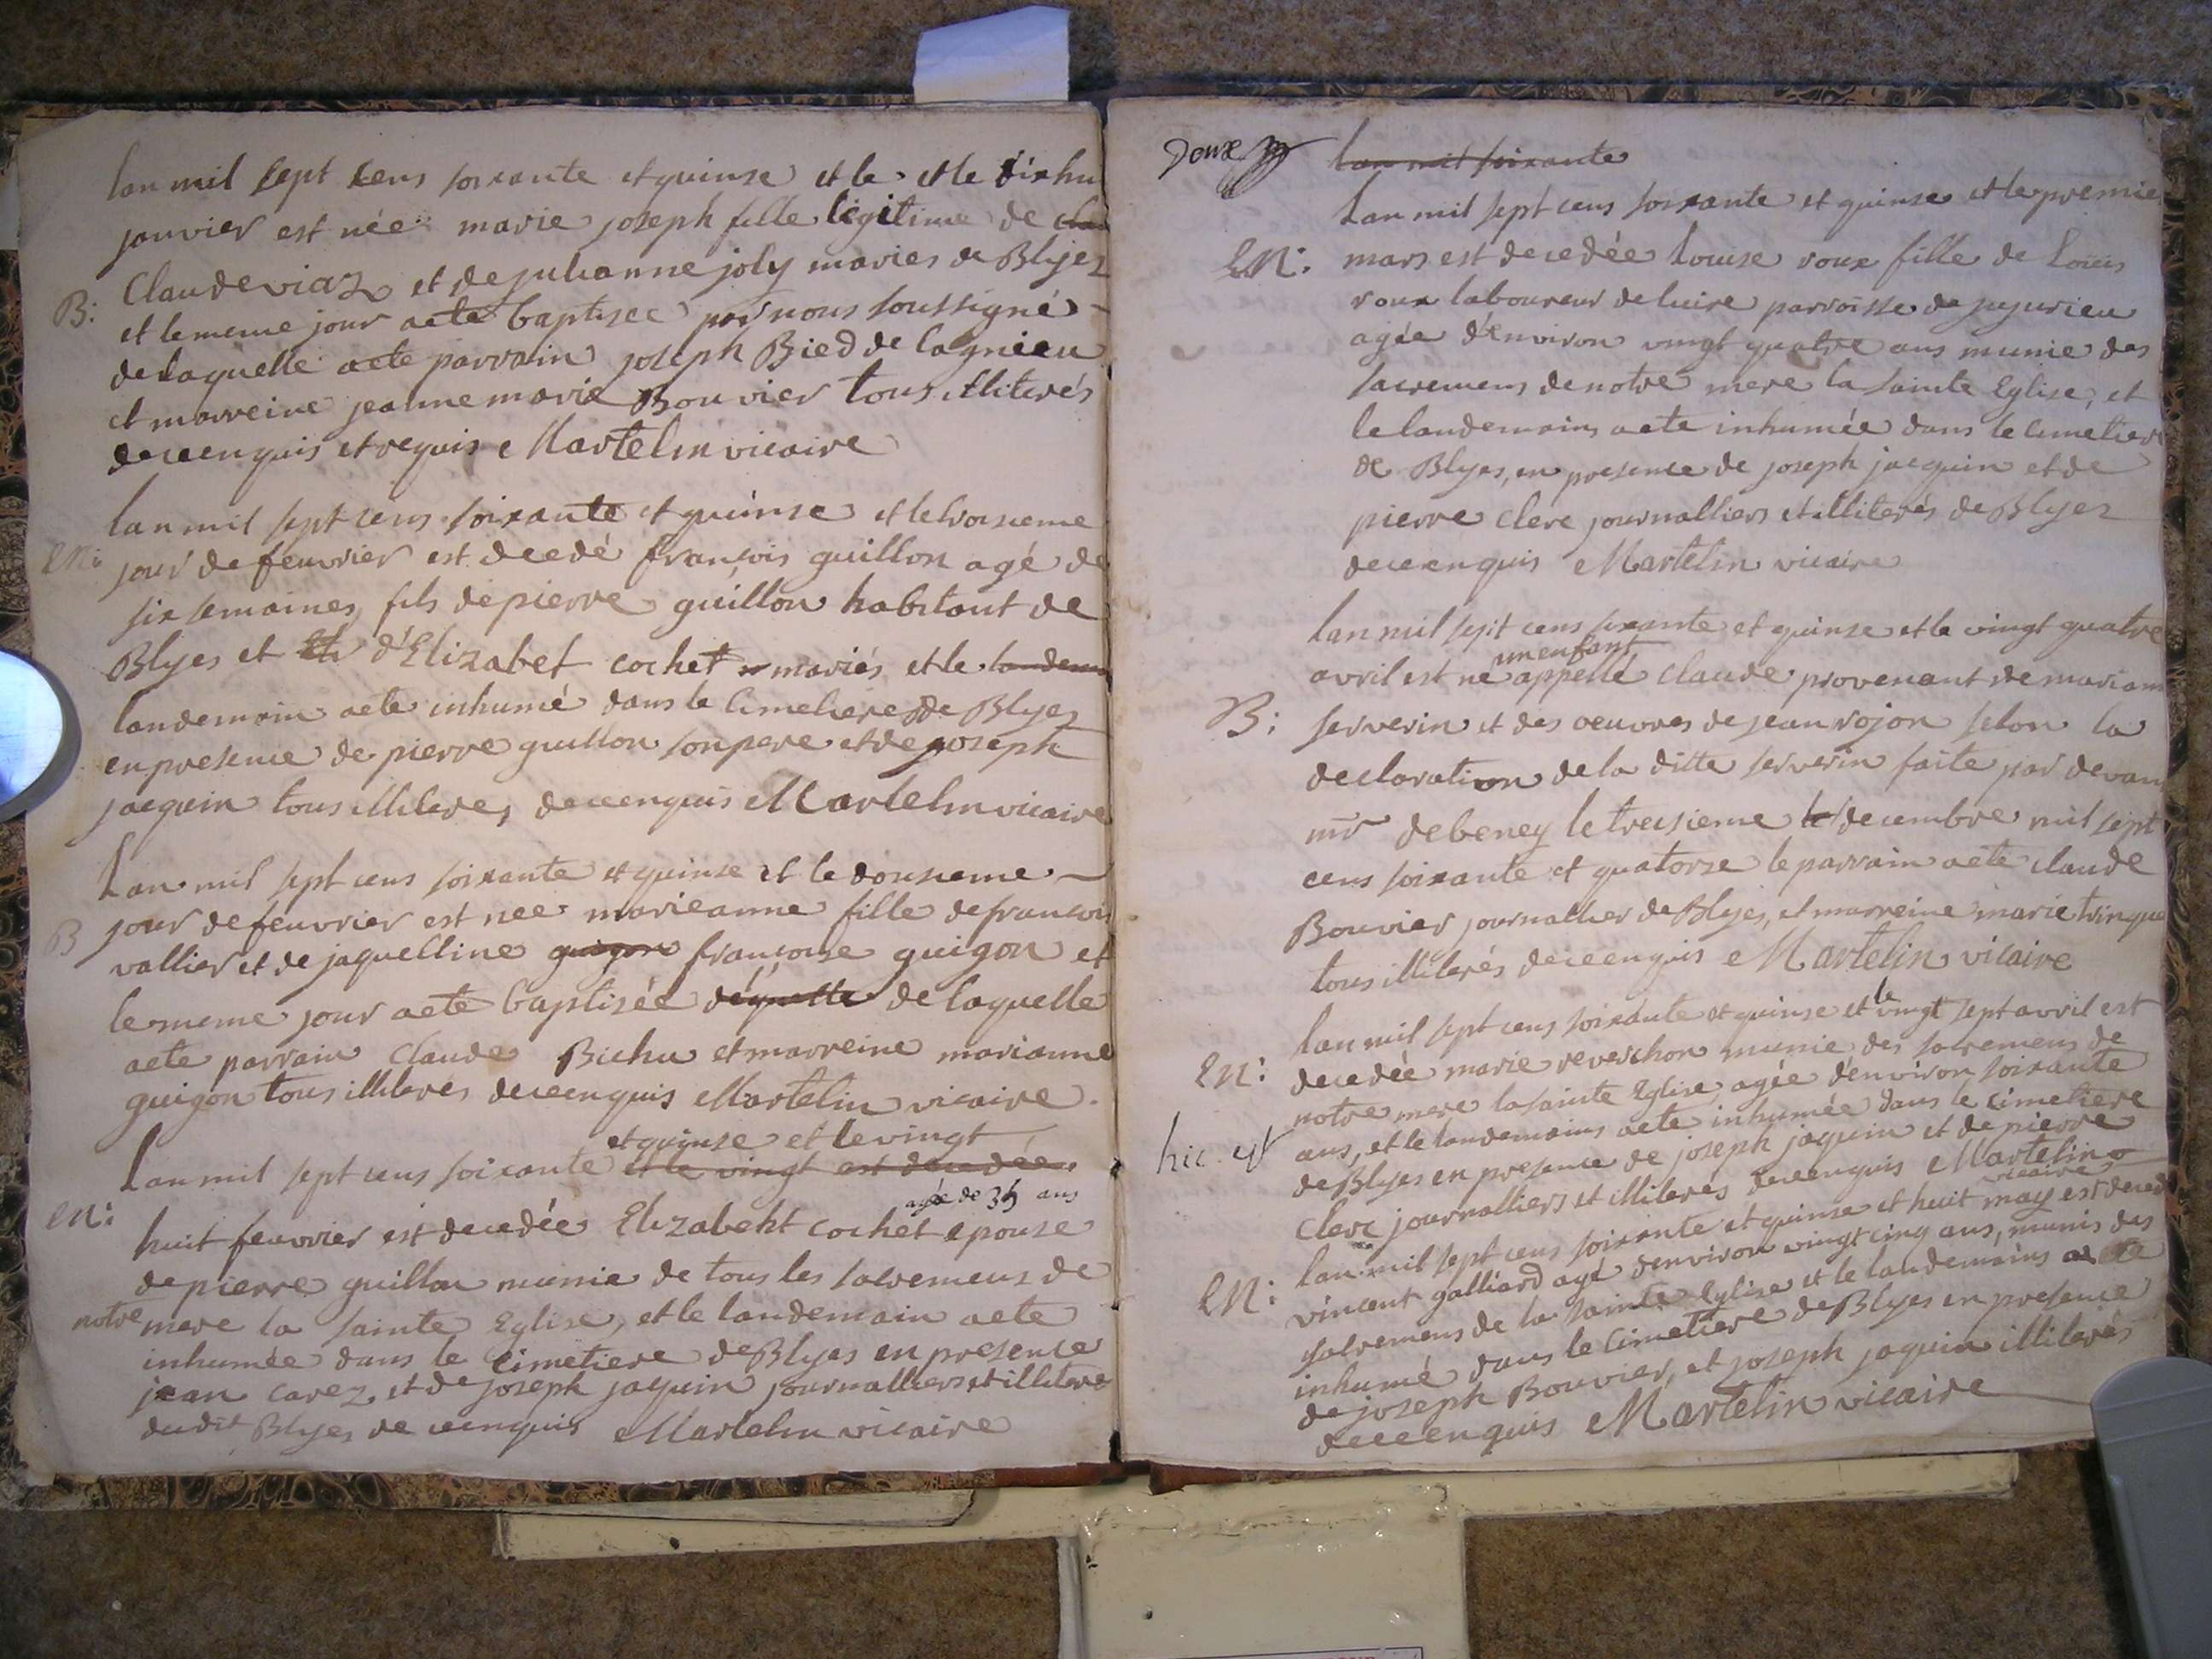 lan mil sept cens soixante et quinse et le et le dixhu
janvier est née marie joseph fille légitime de clau
B: Claude viaz et de julianne joly mariés de Blyes
et le meme jour aete baptisée par nous soussigné
de laquelle aete parrain joseph Bied de lagnieu
et marreine jeanne marie Bouvier tous illiterés
de ce enquis et requis Martelin vicaire
lan mil sept cens soixante et quinse et le troisieme
en: jour de feuvrier est decedé françois guillon agé de
six semaines, fils de pierre guillon habitant de
Blyes et d'Elizabet cochet mariés et le landem
landemain aete inhumé dans le Cimetiere de Blyes
en presence de pierre guillon son pere et de joseph
jacquin tous illiteres, de ce enquis Martelin vicaire
Lan mil sept cens soixante et quinse et le dousieme
B jour de feuvrier est nee marieanne fille de francois
vallier et de jaquelline guigon françoise guigon et
le meme jour aete baptisée déquelle de laquelle
aete parrain Claude Bichu et marreine marianne
guigon tous illiterés de ce enquis Martelin vicaire.
et quinse et le vingt
Lan mil sept cens soixante et le vingt est decedée
agée de 35 ans
en: huit feuvrier est decedée Elizabeht cochet epouse
de pierre guillon munie de tous les sacremens de
notre mere la sainte Eglise, et le landemain aete
inhumée dans le Cimetiere de Blyes en presence
jean carez, et de joseph jaquin journalliers et illitere
dudit Blyes de ce enquis Martelin vicaire
Doux lan mil soixante
Lan mil sept cens soixante et quinse et le premie
En: mars est decedée Louise roux fille de Loüis
roux laboureur de luire parroisse de jujurieu
agée d'environ vingt quatre ans munie des
sacremens de notre mere la sainte Eglise, et
le landemains aete inhumée dans le Cimetiere
de Blyes, en presence de joseph jacquin et de
pierre Clerc journalliers et illiterés de Blyes
de ce enquis Martelin vicaire
lan mil sept cens sixante et quinse et le vingt quatre
un enfant
avril est né appellé Claude provenant de mariam
B: serverin et des oeuvres de jean rojon selon la
declaration de la ditte serverin faite par devan
mr debeney le treisieme le decembre mil sept
cens soixante et quatorse le parrain aete claude
Bouvier journallier de Blyes, et marreine marie trinque
tous illiterés de ce enquis Martelin vicaire
lan mil sept cens soixante et quinse et le vingt sept avril est
En: decedée marie reverchon munie des sacremens de
notre mere la sainte Eglise, agée d'environ soixante
ans, et le landemains aete inhumée dans le cimetiere
hic est de Blyes en presence de joseph jaquin et de pierre
Clerc journalliers et illiteres de ce enquis Martelin
vicaire
lan mil sept cens soixante et quinse et huit may est deced
En: vincent galliard agé denviron vingt cinq ans, munis des
salremens de la sainte Eglise et le landemains aete
inhumé dans le Cimetiere de Blyes en presence
de joseph Bouvier, et joseph jaquin illiterés
de ce enquis Martelin vicaire